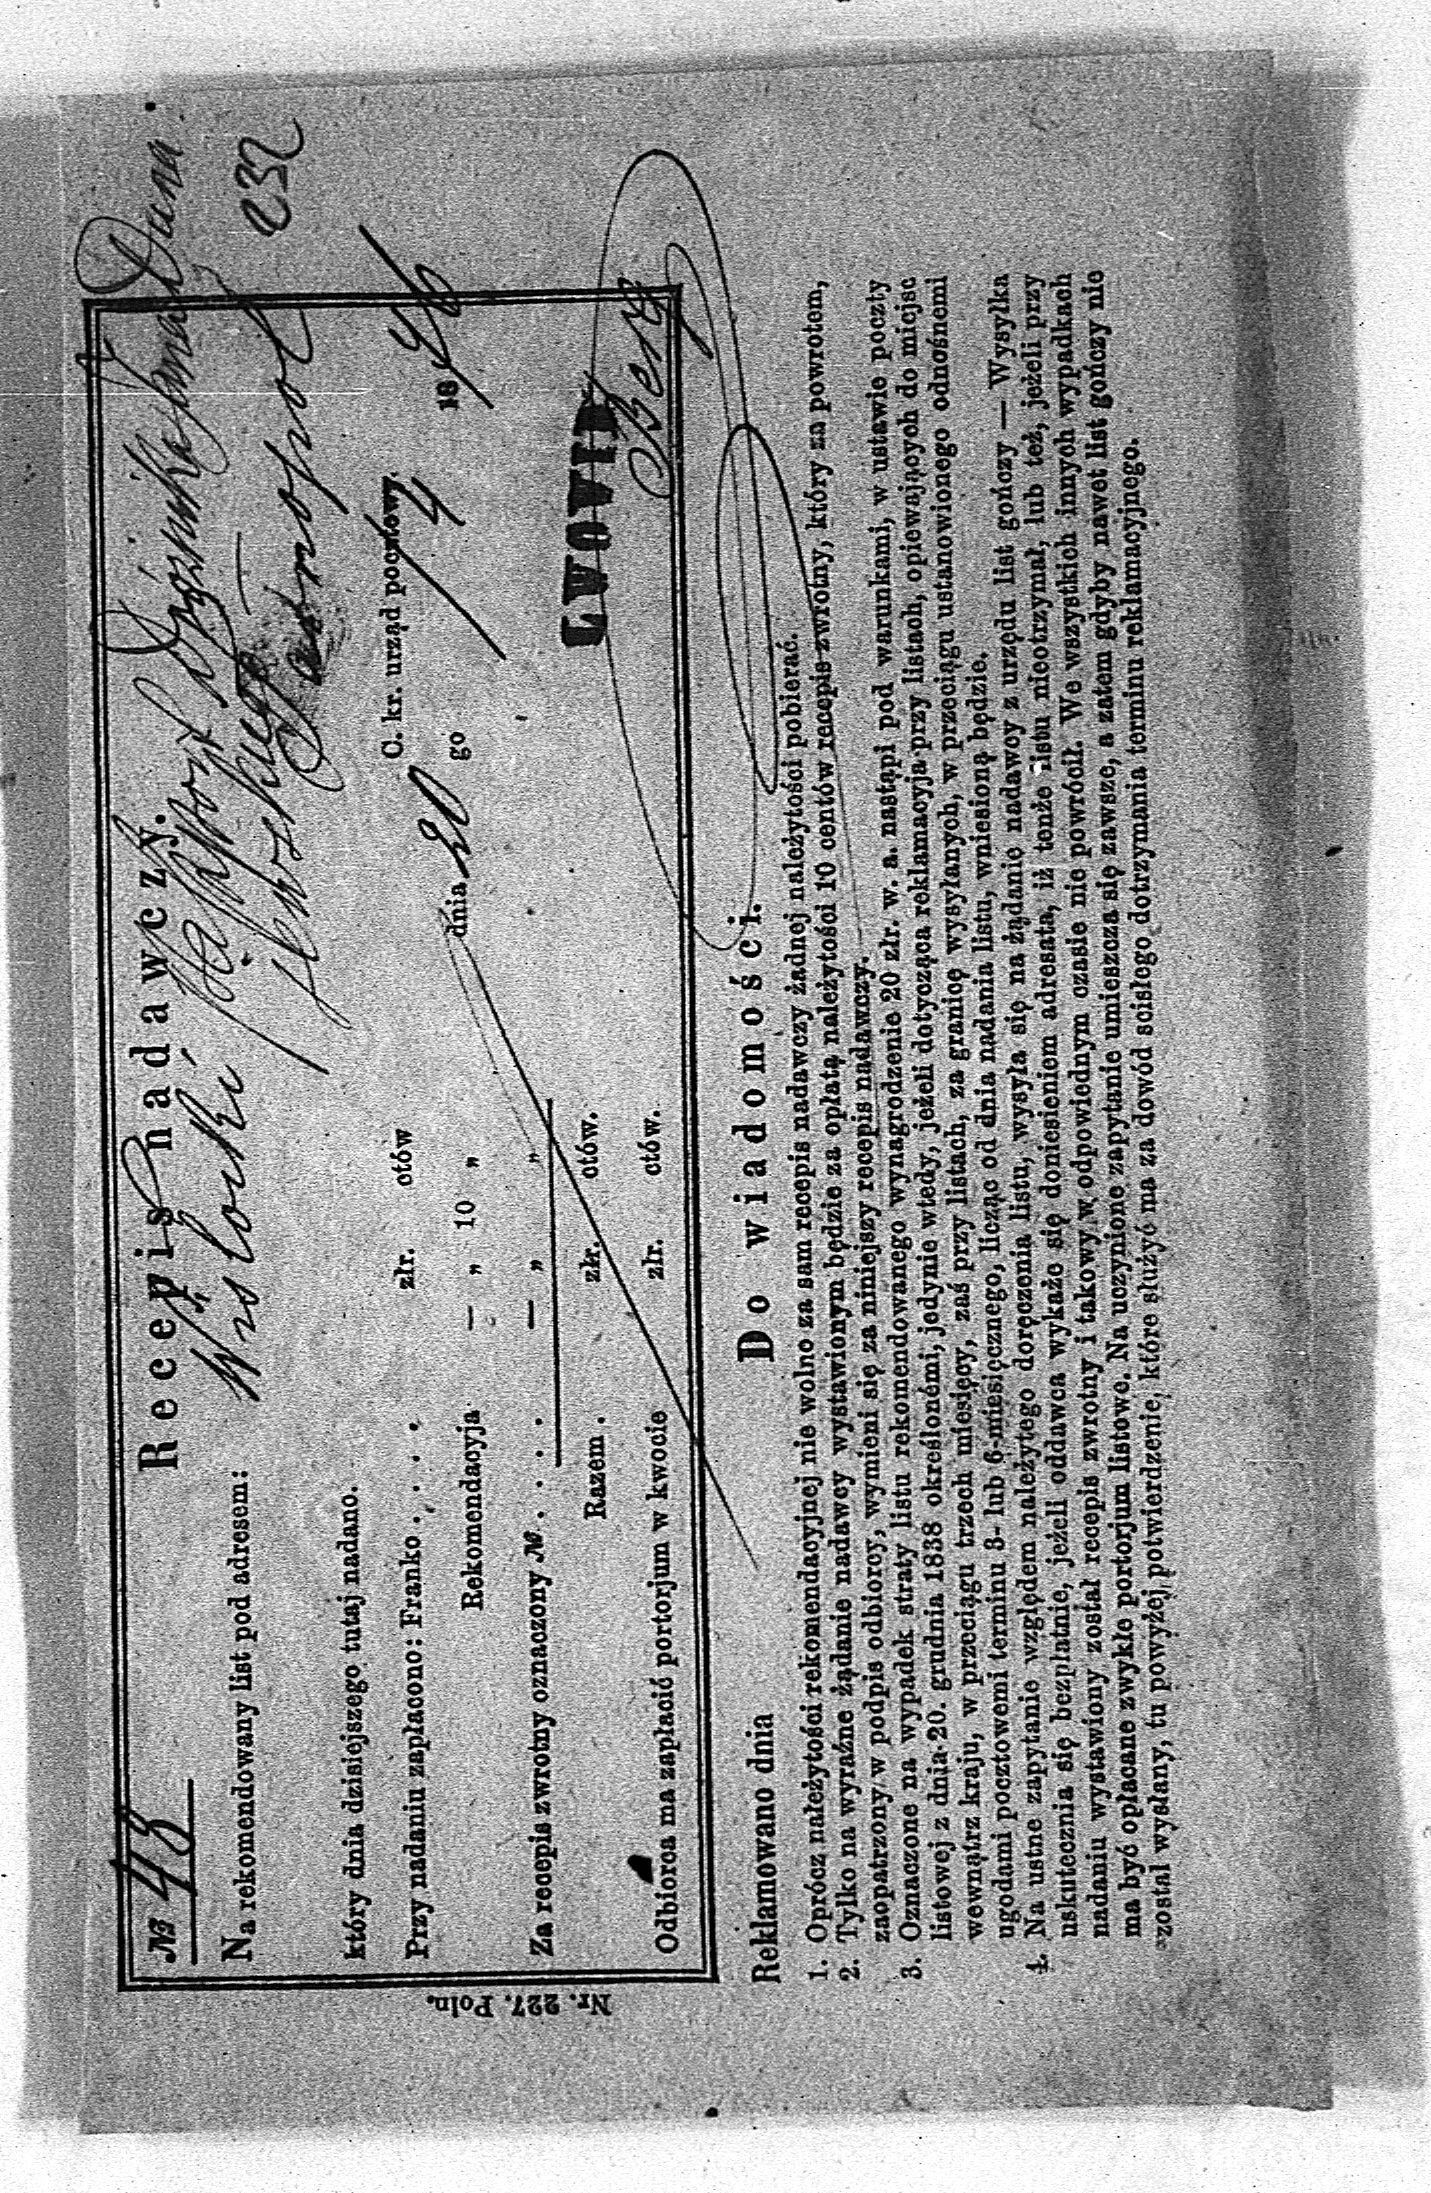 № 48
Recepis nadawczy.
Na rekomendowany list pod adresem:
Wisłocki
Tarnopol
232
który dnia dzisiejszego tutaj nadano.
C. kr. urząd pocztowy.
Przy nadaniu zapłacono: Franko . . . . złr. ctów
dnia 20 go 4 18
Rekomendacyja — „ 10 „
Za recepis zwrotny oznaczony № . . . . — „ „
LWOWIE
Razem . złr. ctów.
Berg
Odbiorca ma zapłacić portorjum w kwocie złr. ctów.
Nr. 227. Poln.
Reklamowano dnia
Do wiadomości.
1. Oprócz należytości rekomendacyjnej nie wolno za sam recepis nadawczy żadnej należytości pobierać.
2. Tylko na wyraźne żądanie nadawcy wystawionym będzie za opłatą należytości 10 centów recepis zwrotny, który za powrotem,
zaopatrzony w podpis odbiorcy, wymieni się za niniejszy recepis nadawczy.
3. Oznaczone na wypadek straty listu rekomendowanego wynagrodzenie 20 złr. w. a. nastąpi pod warunkami, w ustawie poczty
listowej z dnia 20. grudnia 1838 określonémi, jedynie wtedy, jeżeli dotycząca reklamacyja przy listach, opiewających do miejsc
wewnątrz kraju, w przeciągu trzech miesięcy, zaś przy listach, za granicę wysyłanych, w przeciągu ustanowionego odnośnemi
ugodami pocztowemi terminu 3- lub 6-miesięcznego, licząc od dnia nadania listu, wniesioną będzie.
4. Na ustne zapytanie względem należytego doręczenia listu, wysyła się na żądanie nadawcy z urzędu list gończy — Wysyłka
uskutecznia się bezpłatnie, jeżeli oddawca wykaże się doniesieniem adresata, iż tenże listu nieotrzymał, lub też, jeżeli przy
nadaniu wystawiony został recepis zwrotny i takowy w odpowiednym czasie nie powrócił. We wszystkich innych wypadkach
ma być opłacane zwykłe portorjum listowe. Na uczynione zapytanie umieszcza się zawsze, a zatem gdyby nawet list gończy nie
został wysłany, tu powyżej potwierdzenie, które służyć ma za dowód scisłego dotrzymania terminu reklamacyjnego.